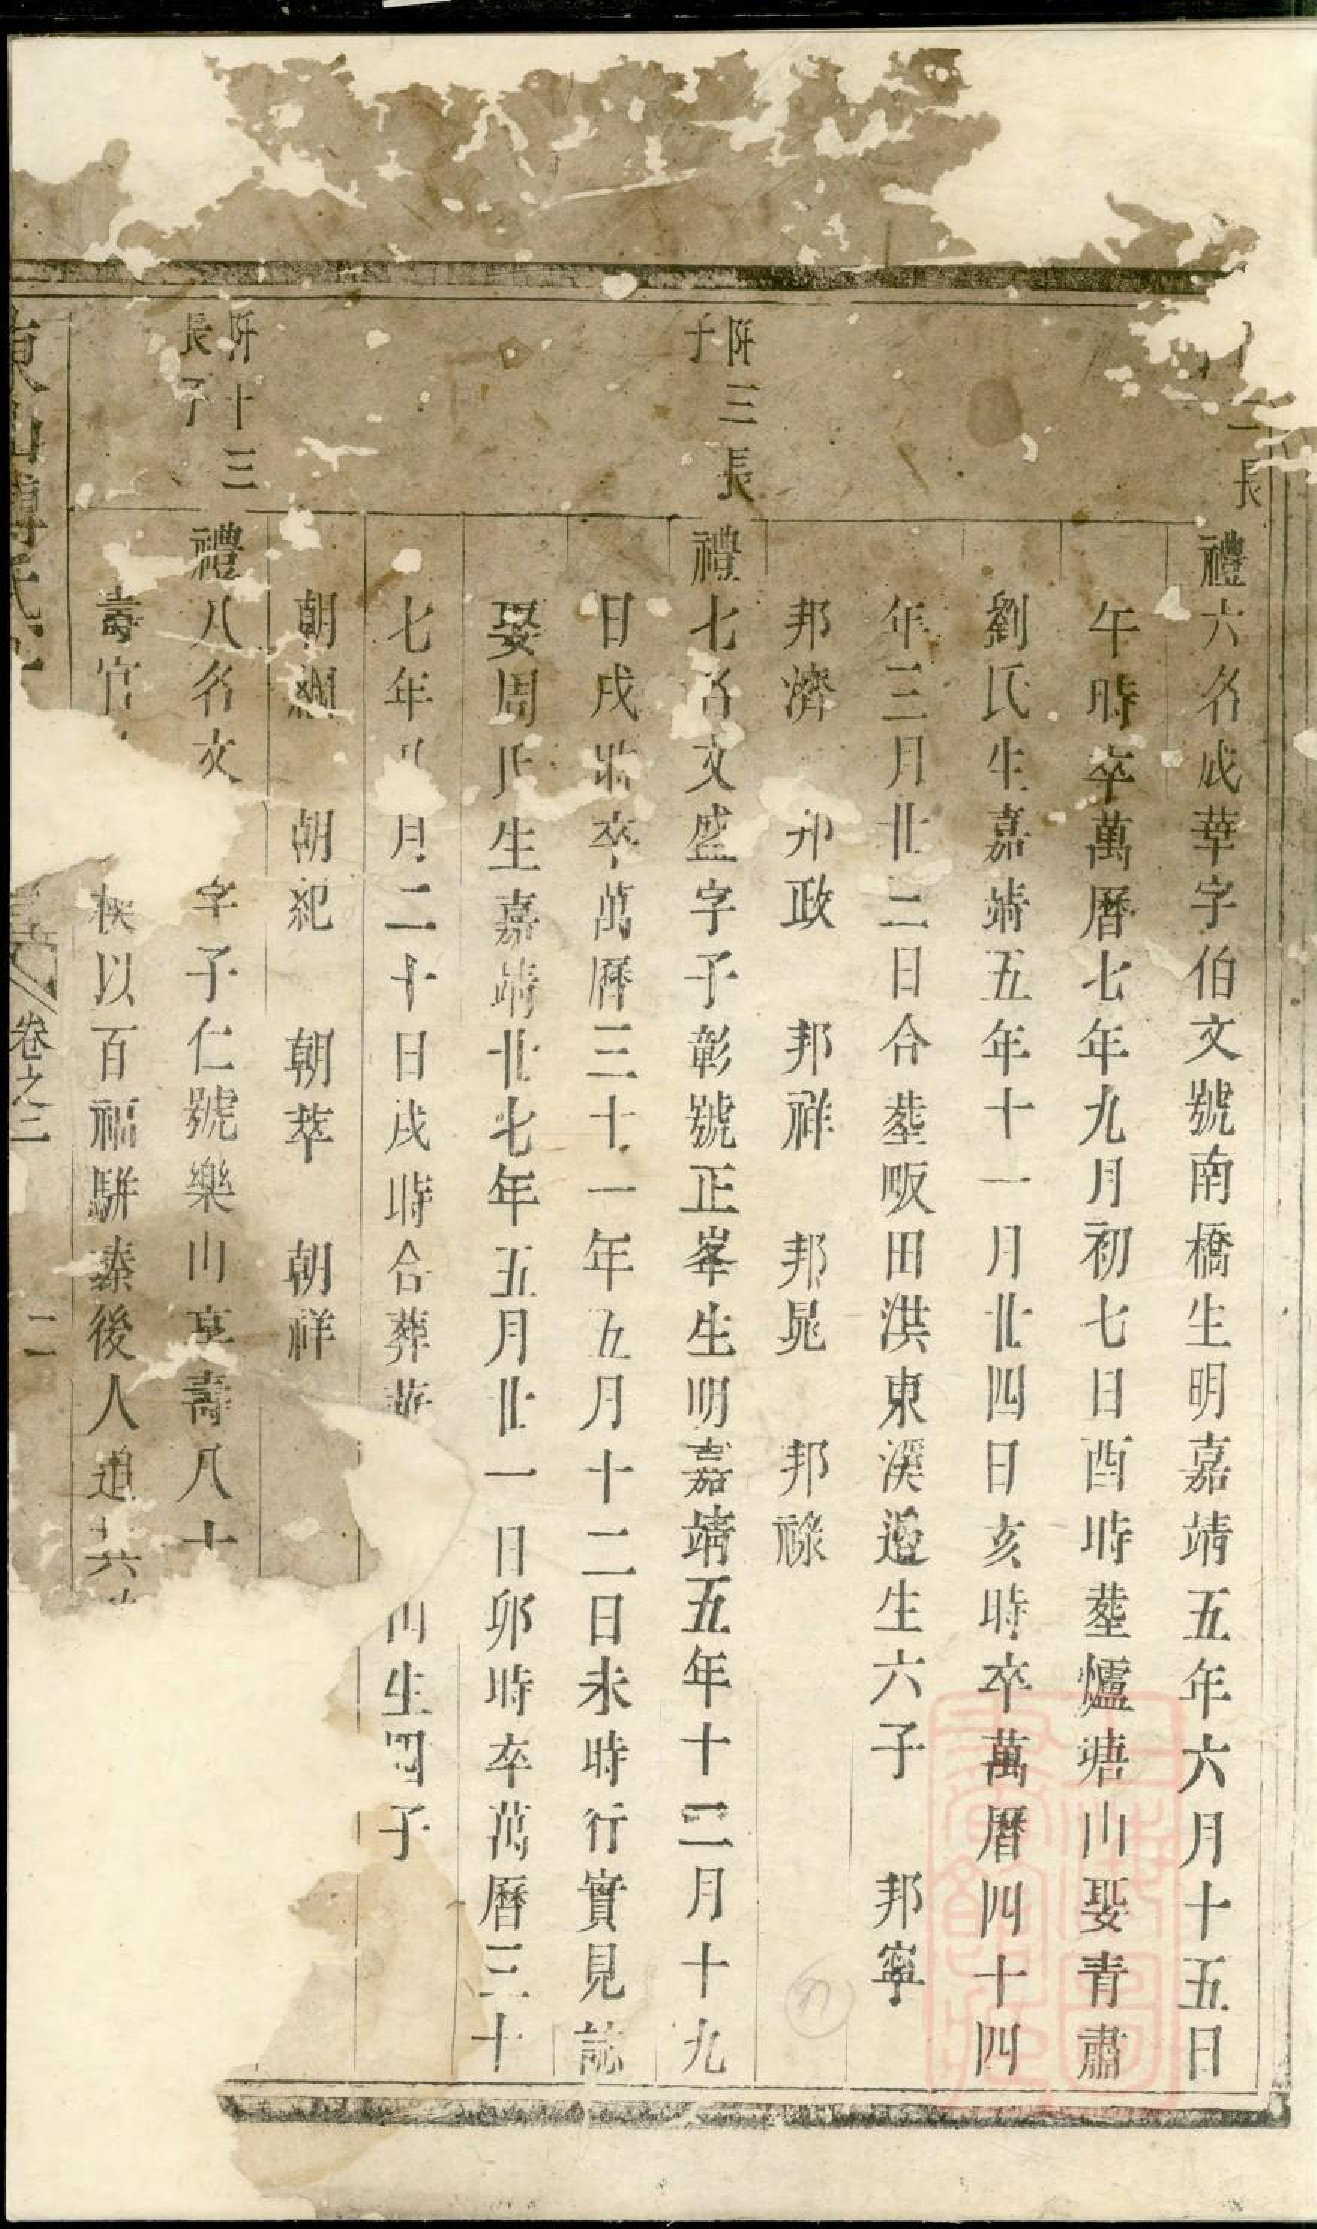 二長
禮六名成華字伯文號南橋生明嘉靖五年六月十五日
午時卒萬曆七年九月初七日酉時塟爐塘山娶青肅
劉氏生嘉靖五年十一月廿四日亥時卒萬曆四十四
年三月廿二日合塟畈田洪東溪邊生六子 邦寧
邦濟 邦政 邦祥 邦晁 邦祿
阩三長
子
禮七名文盛字子彰號正峯生明嘉靖五年十二月十九
日戌時卒萬曆三十一年五月十二日未時行實見誌
娶周氏生嘉靖廿七年五月廿一日卯時卒萬曆三十
七年 月二十日戌時合葬 山生四子
朝綱 朝紀 朝萃 朝祥
阩十三
長子
禮八名文 字子仁號樂山享壽八十
壽官 以百福駢臻後人追其
東山 氏
卷之三
二